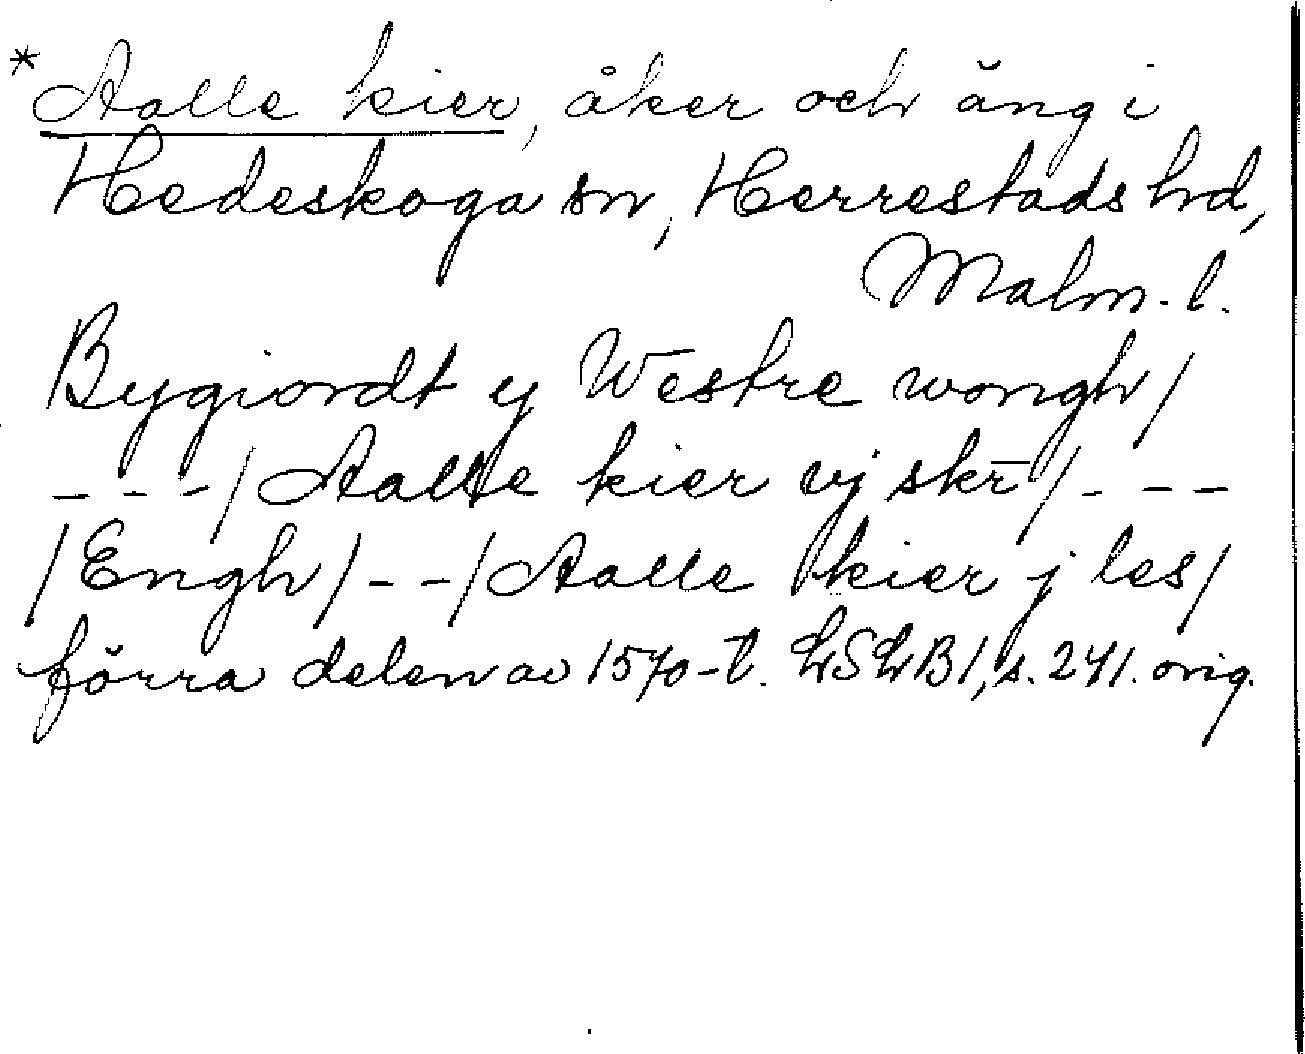 *Aalle kier, åker och äng i
Hedeskoga sn, Herrestads hd,
Malm. l.
Bygiordt y Westre wongh/
---/Aalle kier vj skr̄/---
/Engh/--/Aalle kier j les/
förra delen av 1570-t. LSLB1, s. 241. orig.